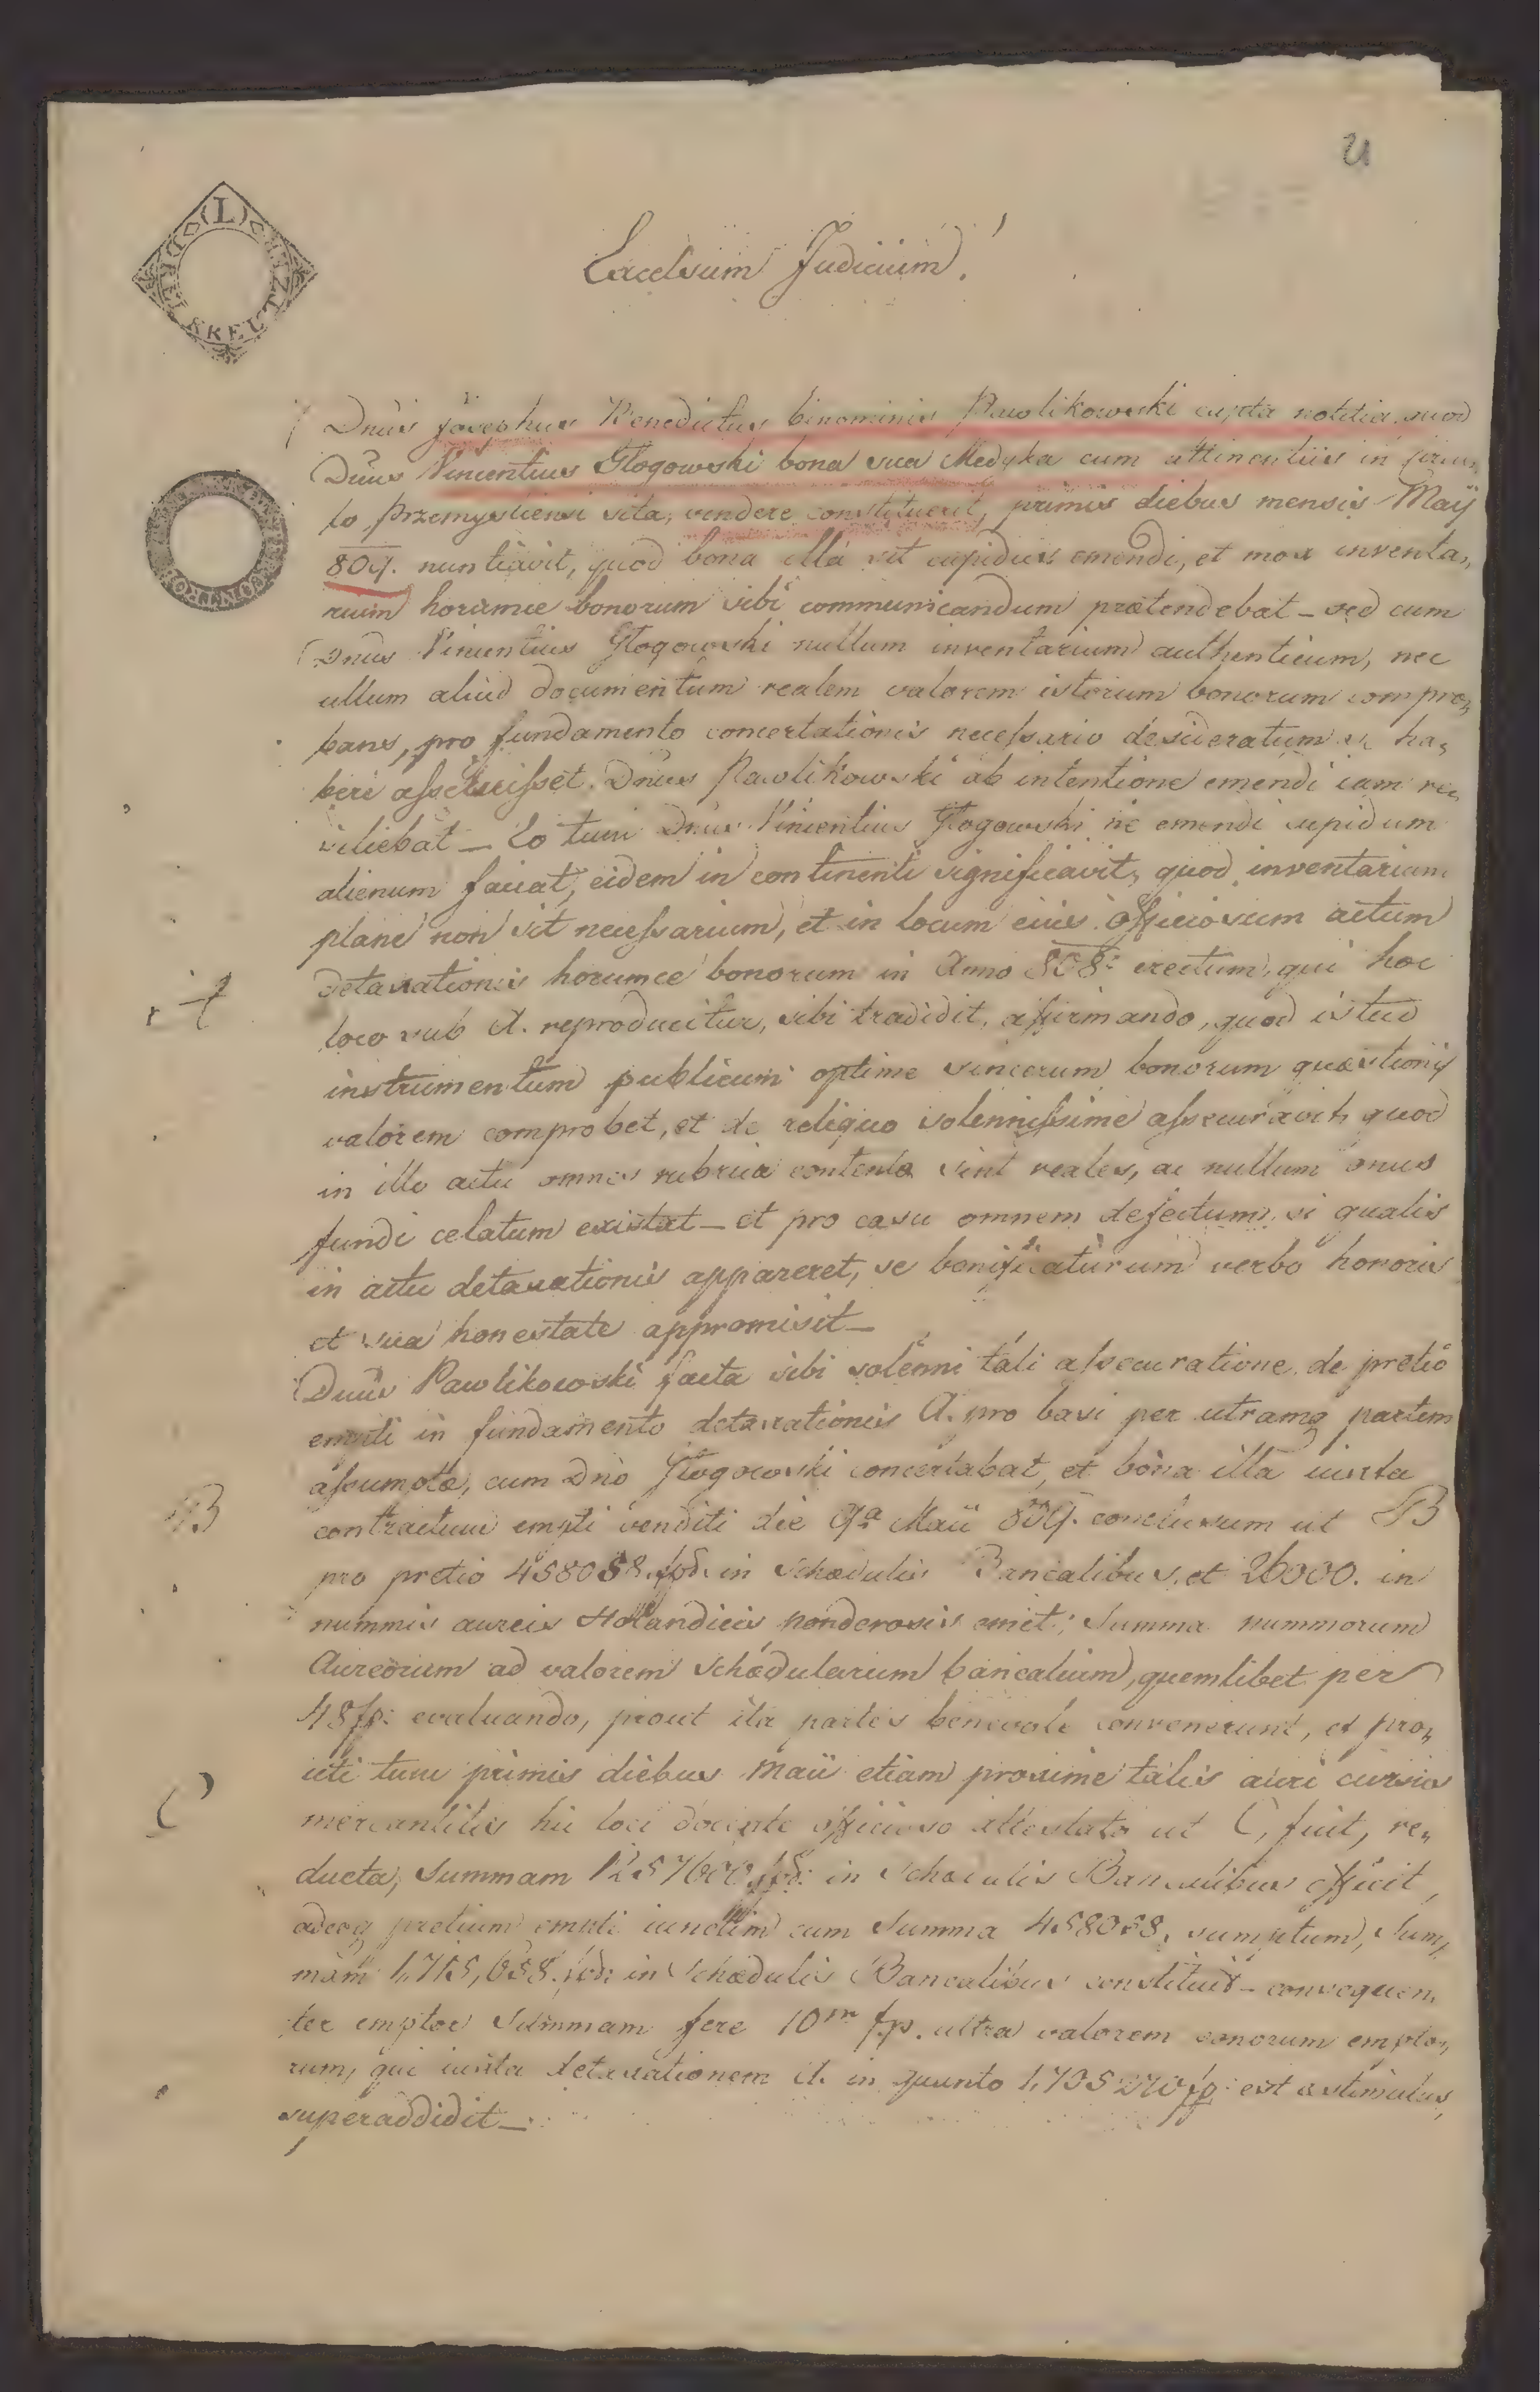 Excelsum Judicium!
Dnus Josephus Benedictus binominis Pawlikowski capta notitia quod
Dnus Vincentius Głogowski bona sua Medyka cum attinentiis in
lo Przemysliensi sita, vendere constituerit, primis diebus mensis Maÿ
809. nuntiavit, quod bona illa sit cupidus emendi, et mox inventa„
rium horumce bonorum sibi communicandum prætendebat – sed cum
Dnus Vincentius Głogowski nullum inventarium authenticum, nec
ullum aliud documentum realem valorem istorum bonorum compro„
bans, pro fundamento concertationis necessario desideratum se ha„
bere asseruisset. Dnus Pawlikowski ab intentione emendi iam re„
siliebat – Eo tum Dnus Vincentius Głogowski ne emendi cupidum
alienum faciat, eidem in continenti significavit, quod inventarium
plane non sit necessarium, et in locum eius officiosum actum
detaxationis horumce bonorum in Anno 808: erectum, qui hoc
loco sub A. reproducitur, sibi tradidit, affirmando, quod istud
instrumentum publicum optime sincerum bonorum quæstionis
valorem comprobet, et de reliquo solennissime assecuravit, quod
in illo actu omnes rubrica contenta sint reales, ac nullum onus
fundi celatum existat – et pro casu omnem defectum, si qualis
in actu detaxationis appareret, se bonificaturum verbo honoris
et sua honestate appromisit –
Dnus Pawlikowski facta sibi solenni tali assecuratione de pretio
empti in fundamento detaxationis A. pro basi per utramq partem
assumptæ, cum Dno Głogowski concertabat, et bona illa iuxta
contractum empti venditi die 9a Maii 809. conclusum ut B
B
pro pretio 458058 in Schædulis Bancalibus, et 26000. in
nummis aureis Holandicis ponderosis emit; Summa nummorum
Aureorum ad valorem Schædularum bancalium, quemlibet per
48 fp: evaluando, prout ita partes benevole convenerunt, et pro„
uti tum primis diebus Maii etiam proxime talis auri cursus
C
mercantilis hic loci docente officioso attestato ut C, fuit, re„
ducta, Summam 1257600 in Schædulis Bancalibus efficit,
adeoq pretium empti iunctim cum Summa 458058, sumptum, Sum„
mam 1,715,658. in Schædulis Bancalibus constituit – consequen„
ter emptor Summam fere 10m fp. ultra valorem bonorum empto„
rum, qui iuxta detaxationem A. in quanto 1,705 270 fp: est æstimatus,
superaddidit –